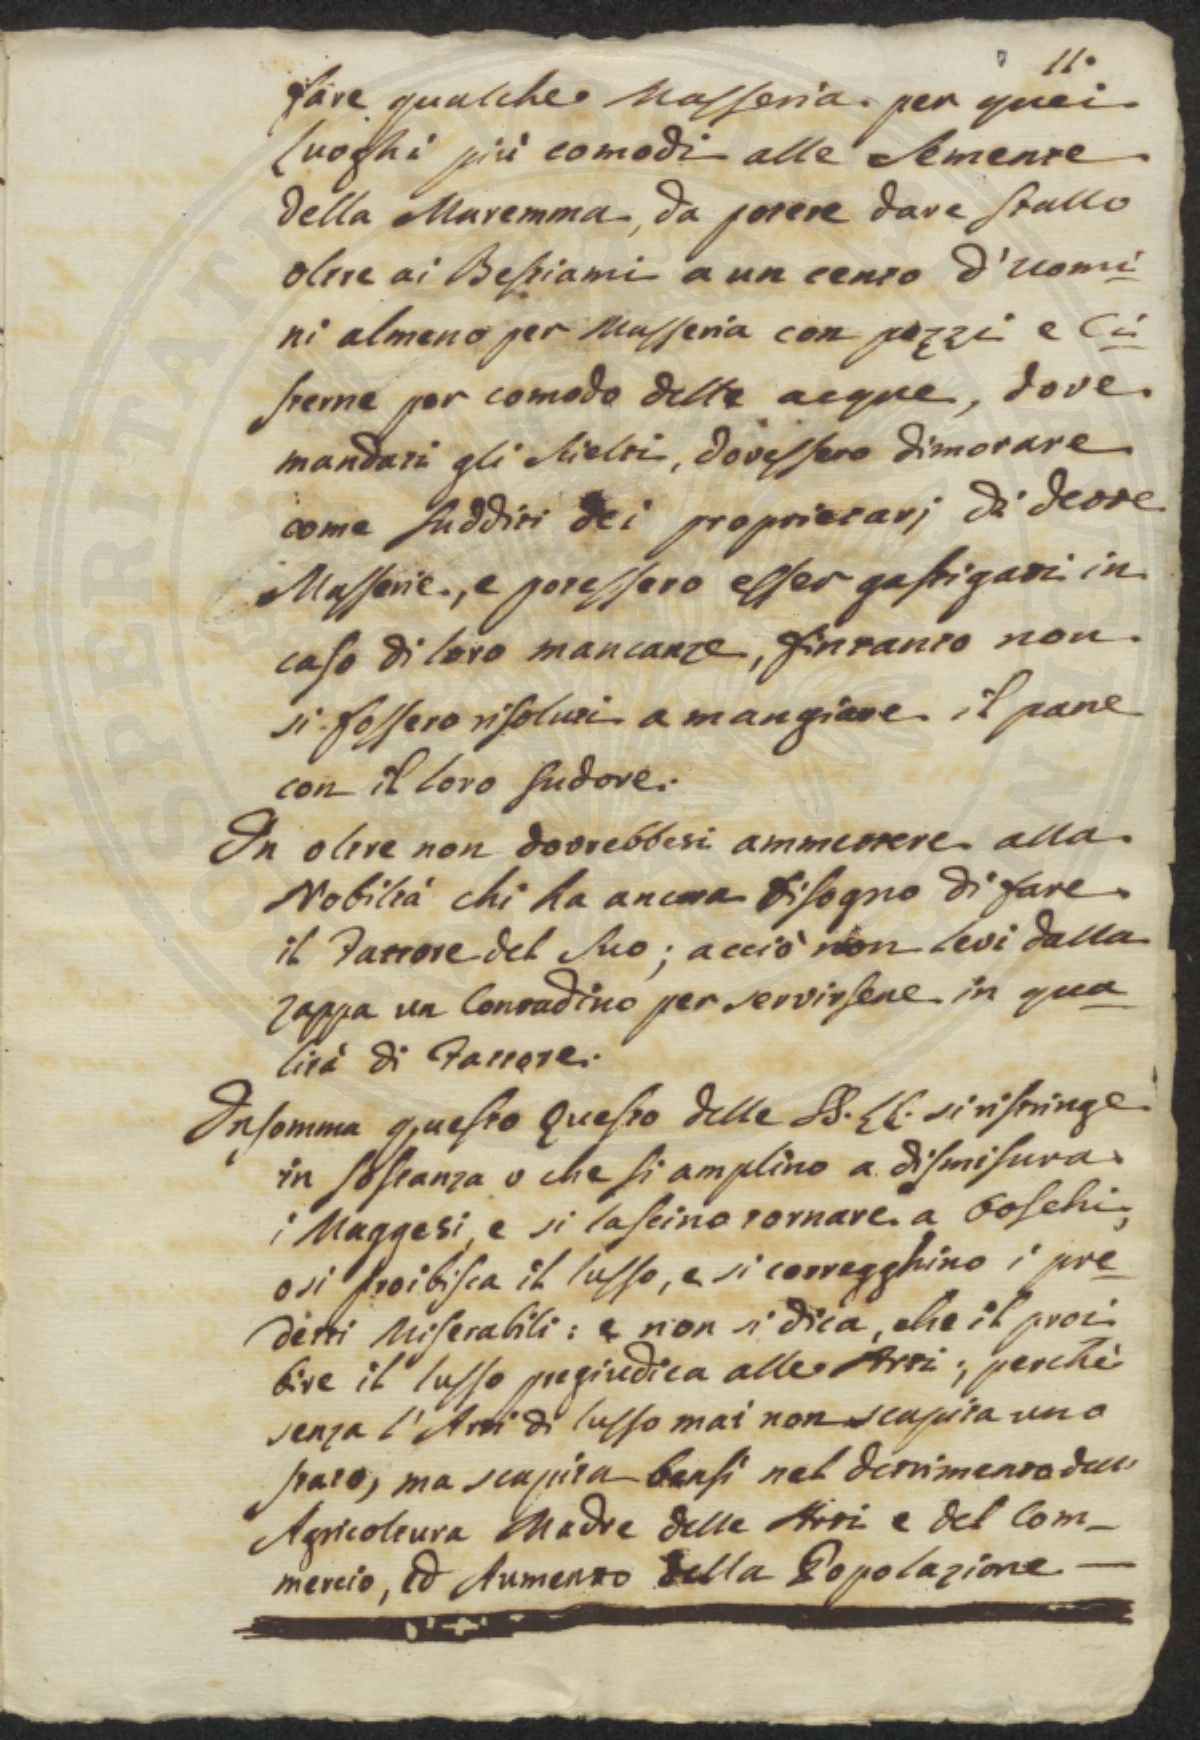 11.
fare qualche Masseria per quei
luoghi più comodi alle Semente
della Maremma, da potere dare stallo
oltre ai Bestiami a un cento d'uomi
ni almeno per Masseria con pozzi e Ci
sterne per comodo delle acque, dove
mandati gli Scielti, dovessero dimorare
come sudditi dei proprietarj di dette
Masserie, e potessero esser gastigati in
caso di loro mancanze, fintanto non
si fossero risoluti a mangiare il pane
con il loro sudore.
In oltre non dovrebbesi ammettere alla
Nobiltà chi ha ancora bisogno di fare
il Fattore del suo; acciò non levi dalla
zappa un Contadino per servirsene in qua
lità di Fattore.
Insomma questo Questo delle SS. LL. si ristringe
in sostanza o che si amplino a dismisura
i Maggesi, e si lascino tornare a boschi,
o si proibisca il lusso, e si corregghino i pre
detti Miserabili: e non si dica, che il proi
bire il lusso pregiudica alle Arti; perchè
senza l'Arti di lusso mai non scapita uno
stato, ma scapita bensì nel detrimento dell'
Agricoltura Madre delle Arti e del Com
mercio, ed Aumento della Popolazione —
SPERITATI